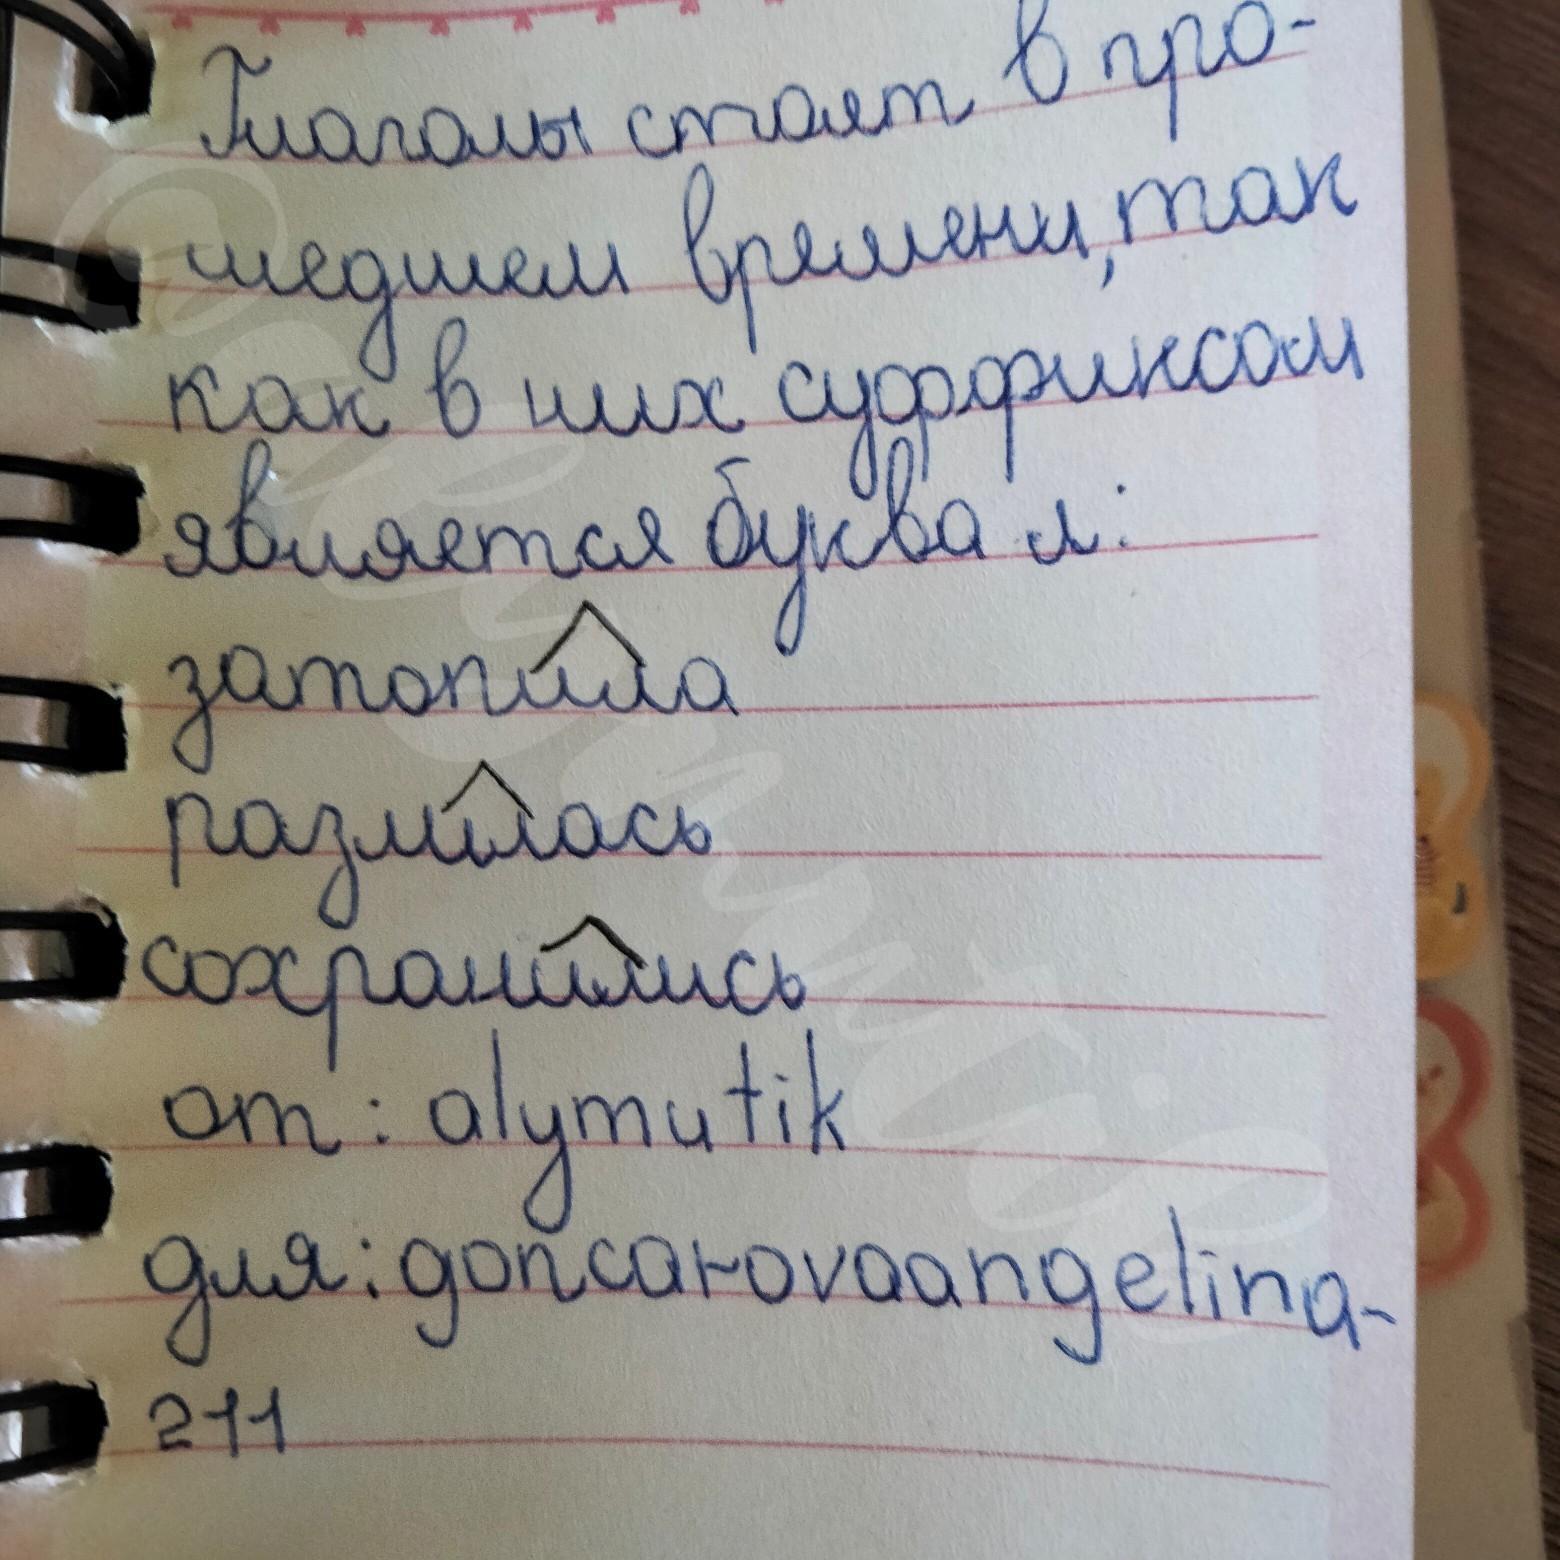 Глаголы стоят в про-
шедшем времени, так
как в них суффиксом
является буква л:
затопила
разлилась
сохранились
от: alymutik
для: goncarovaangelina-
211